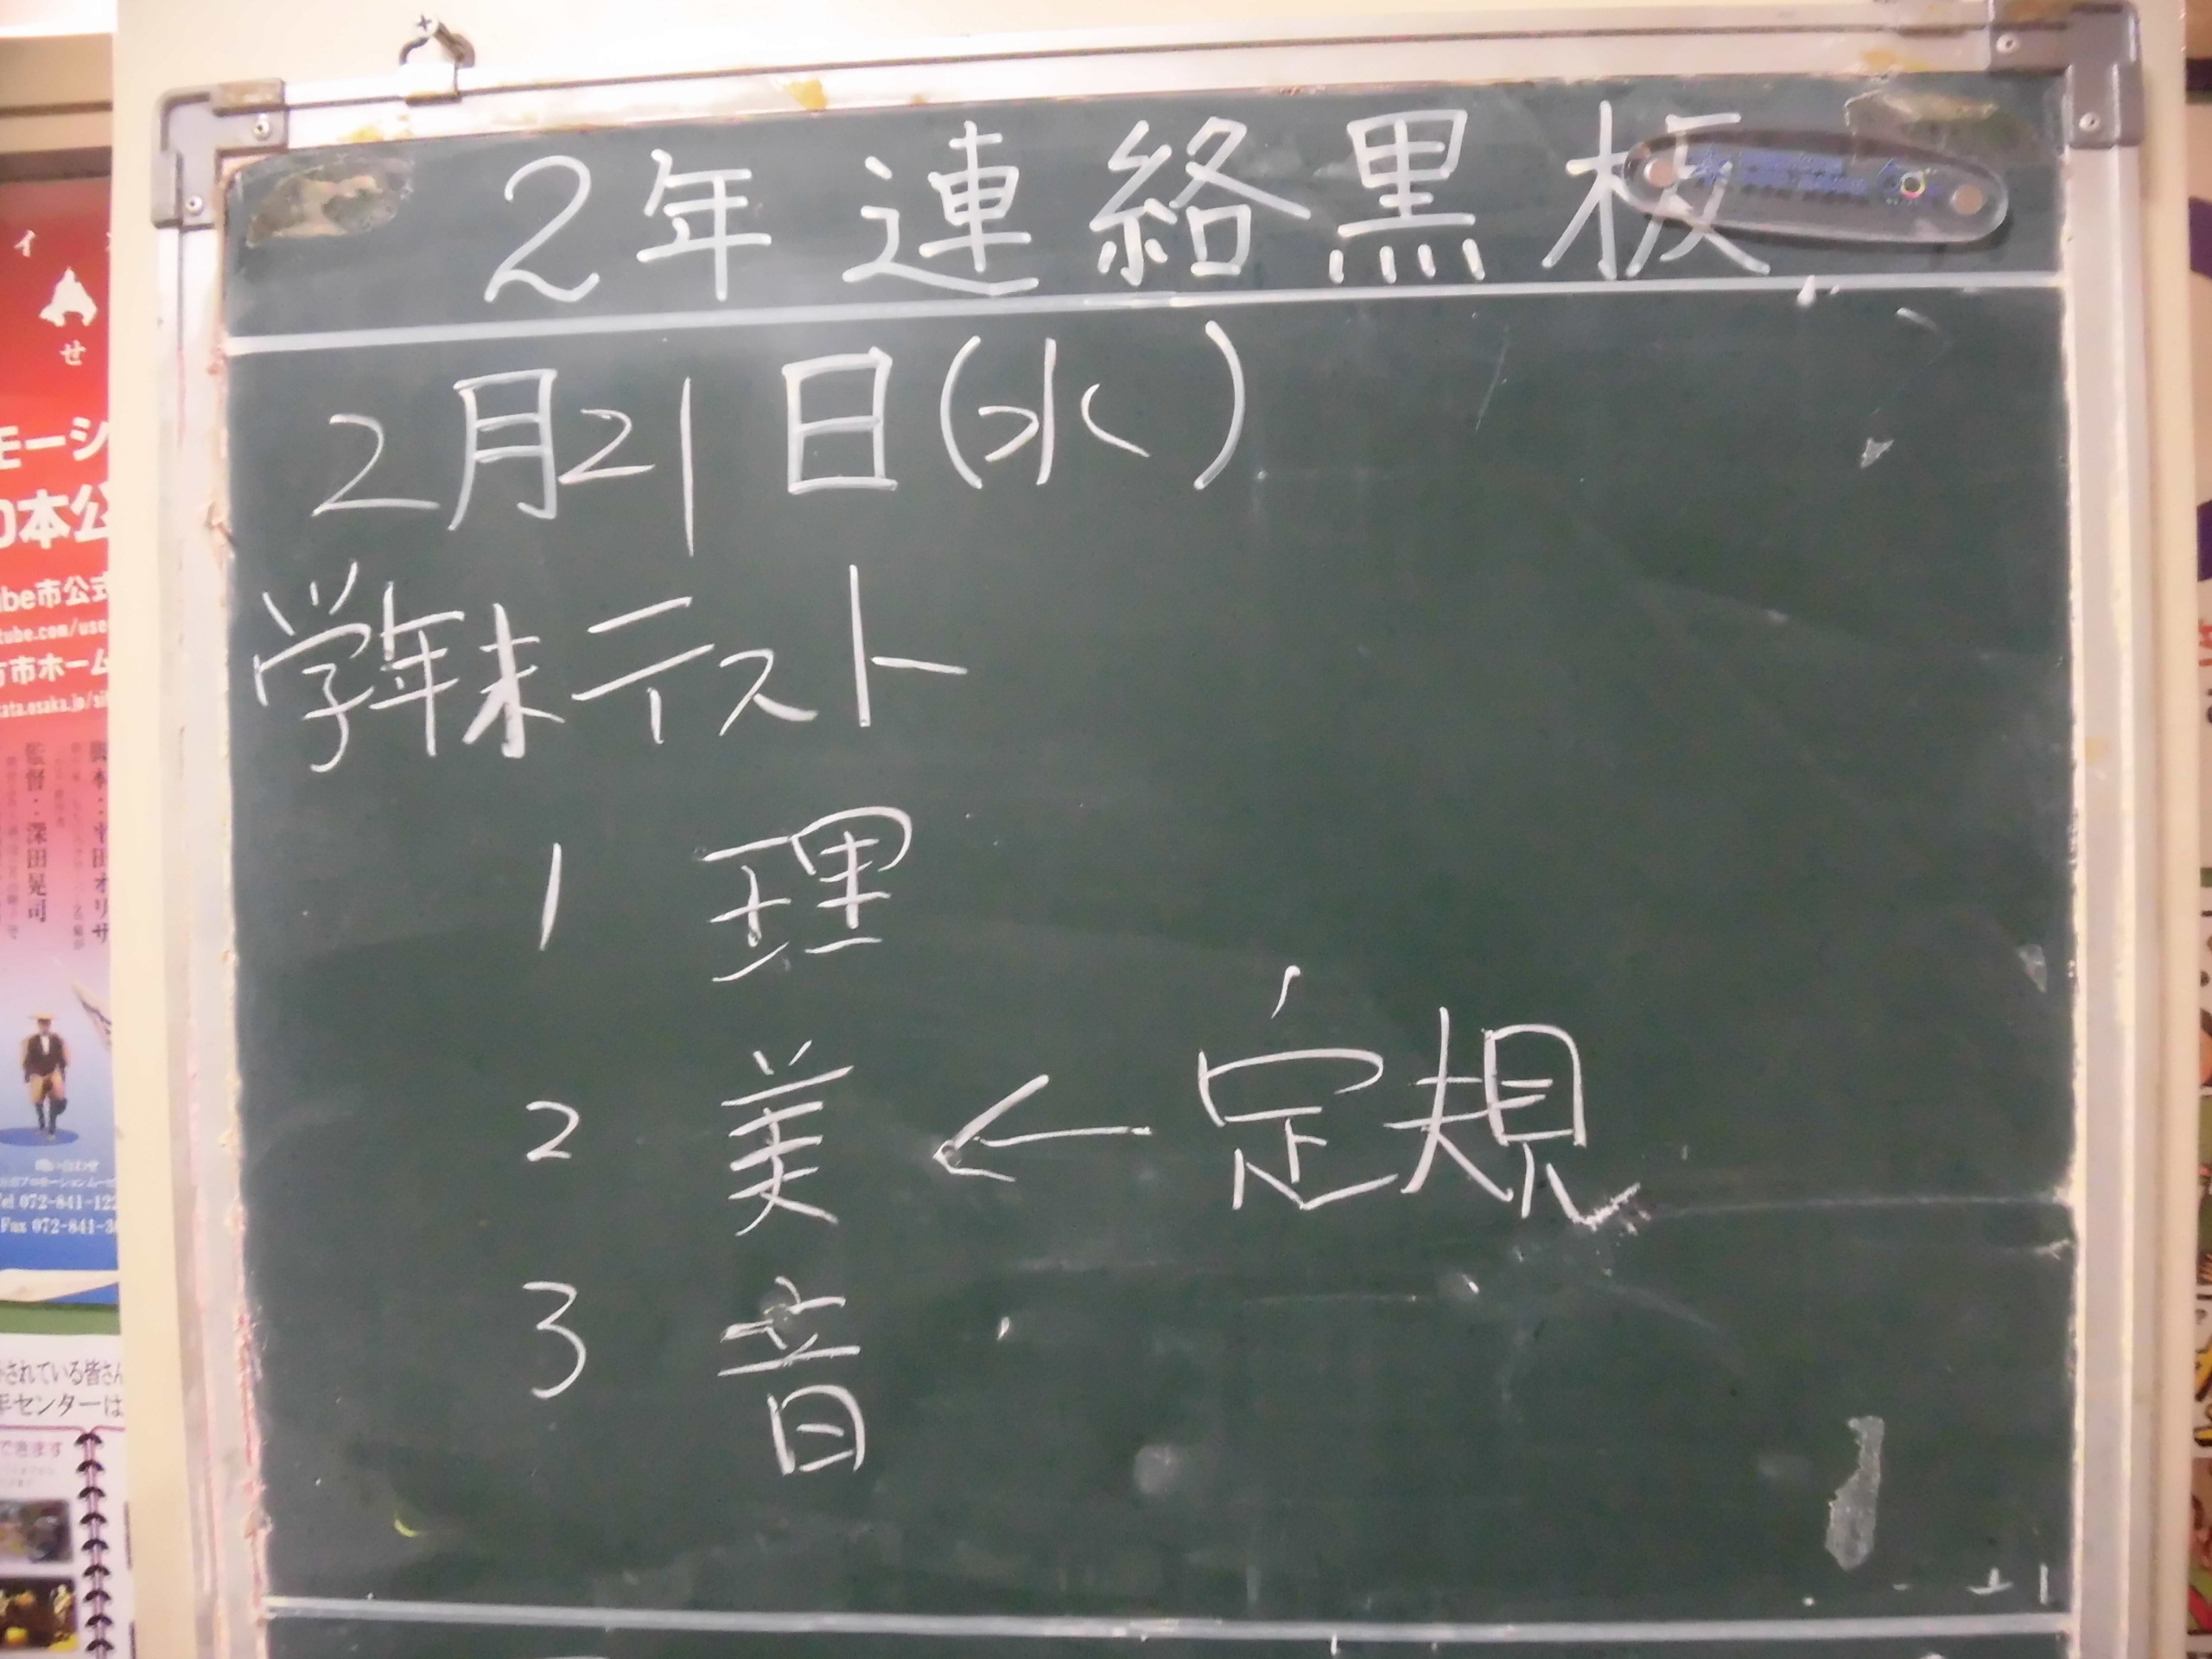 2年連絡黒板
2月21日(水)
学年末テスト
1 理
2 美 ← 定規
3 音
せ
モーシ
本公
be市公式
tube.com/use
市ホーム
ata.osaka.jp/si
監督：深田晃司
Tel 072-841-122
Fax 072-841-3
されている皆さん
センターは
できます